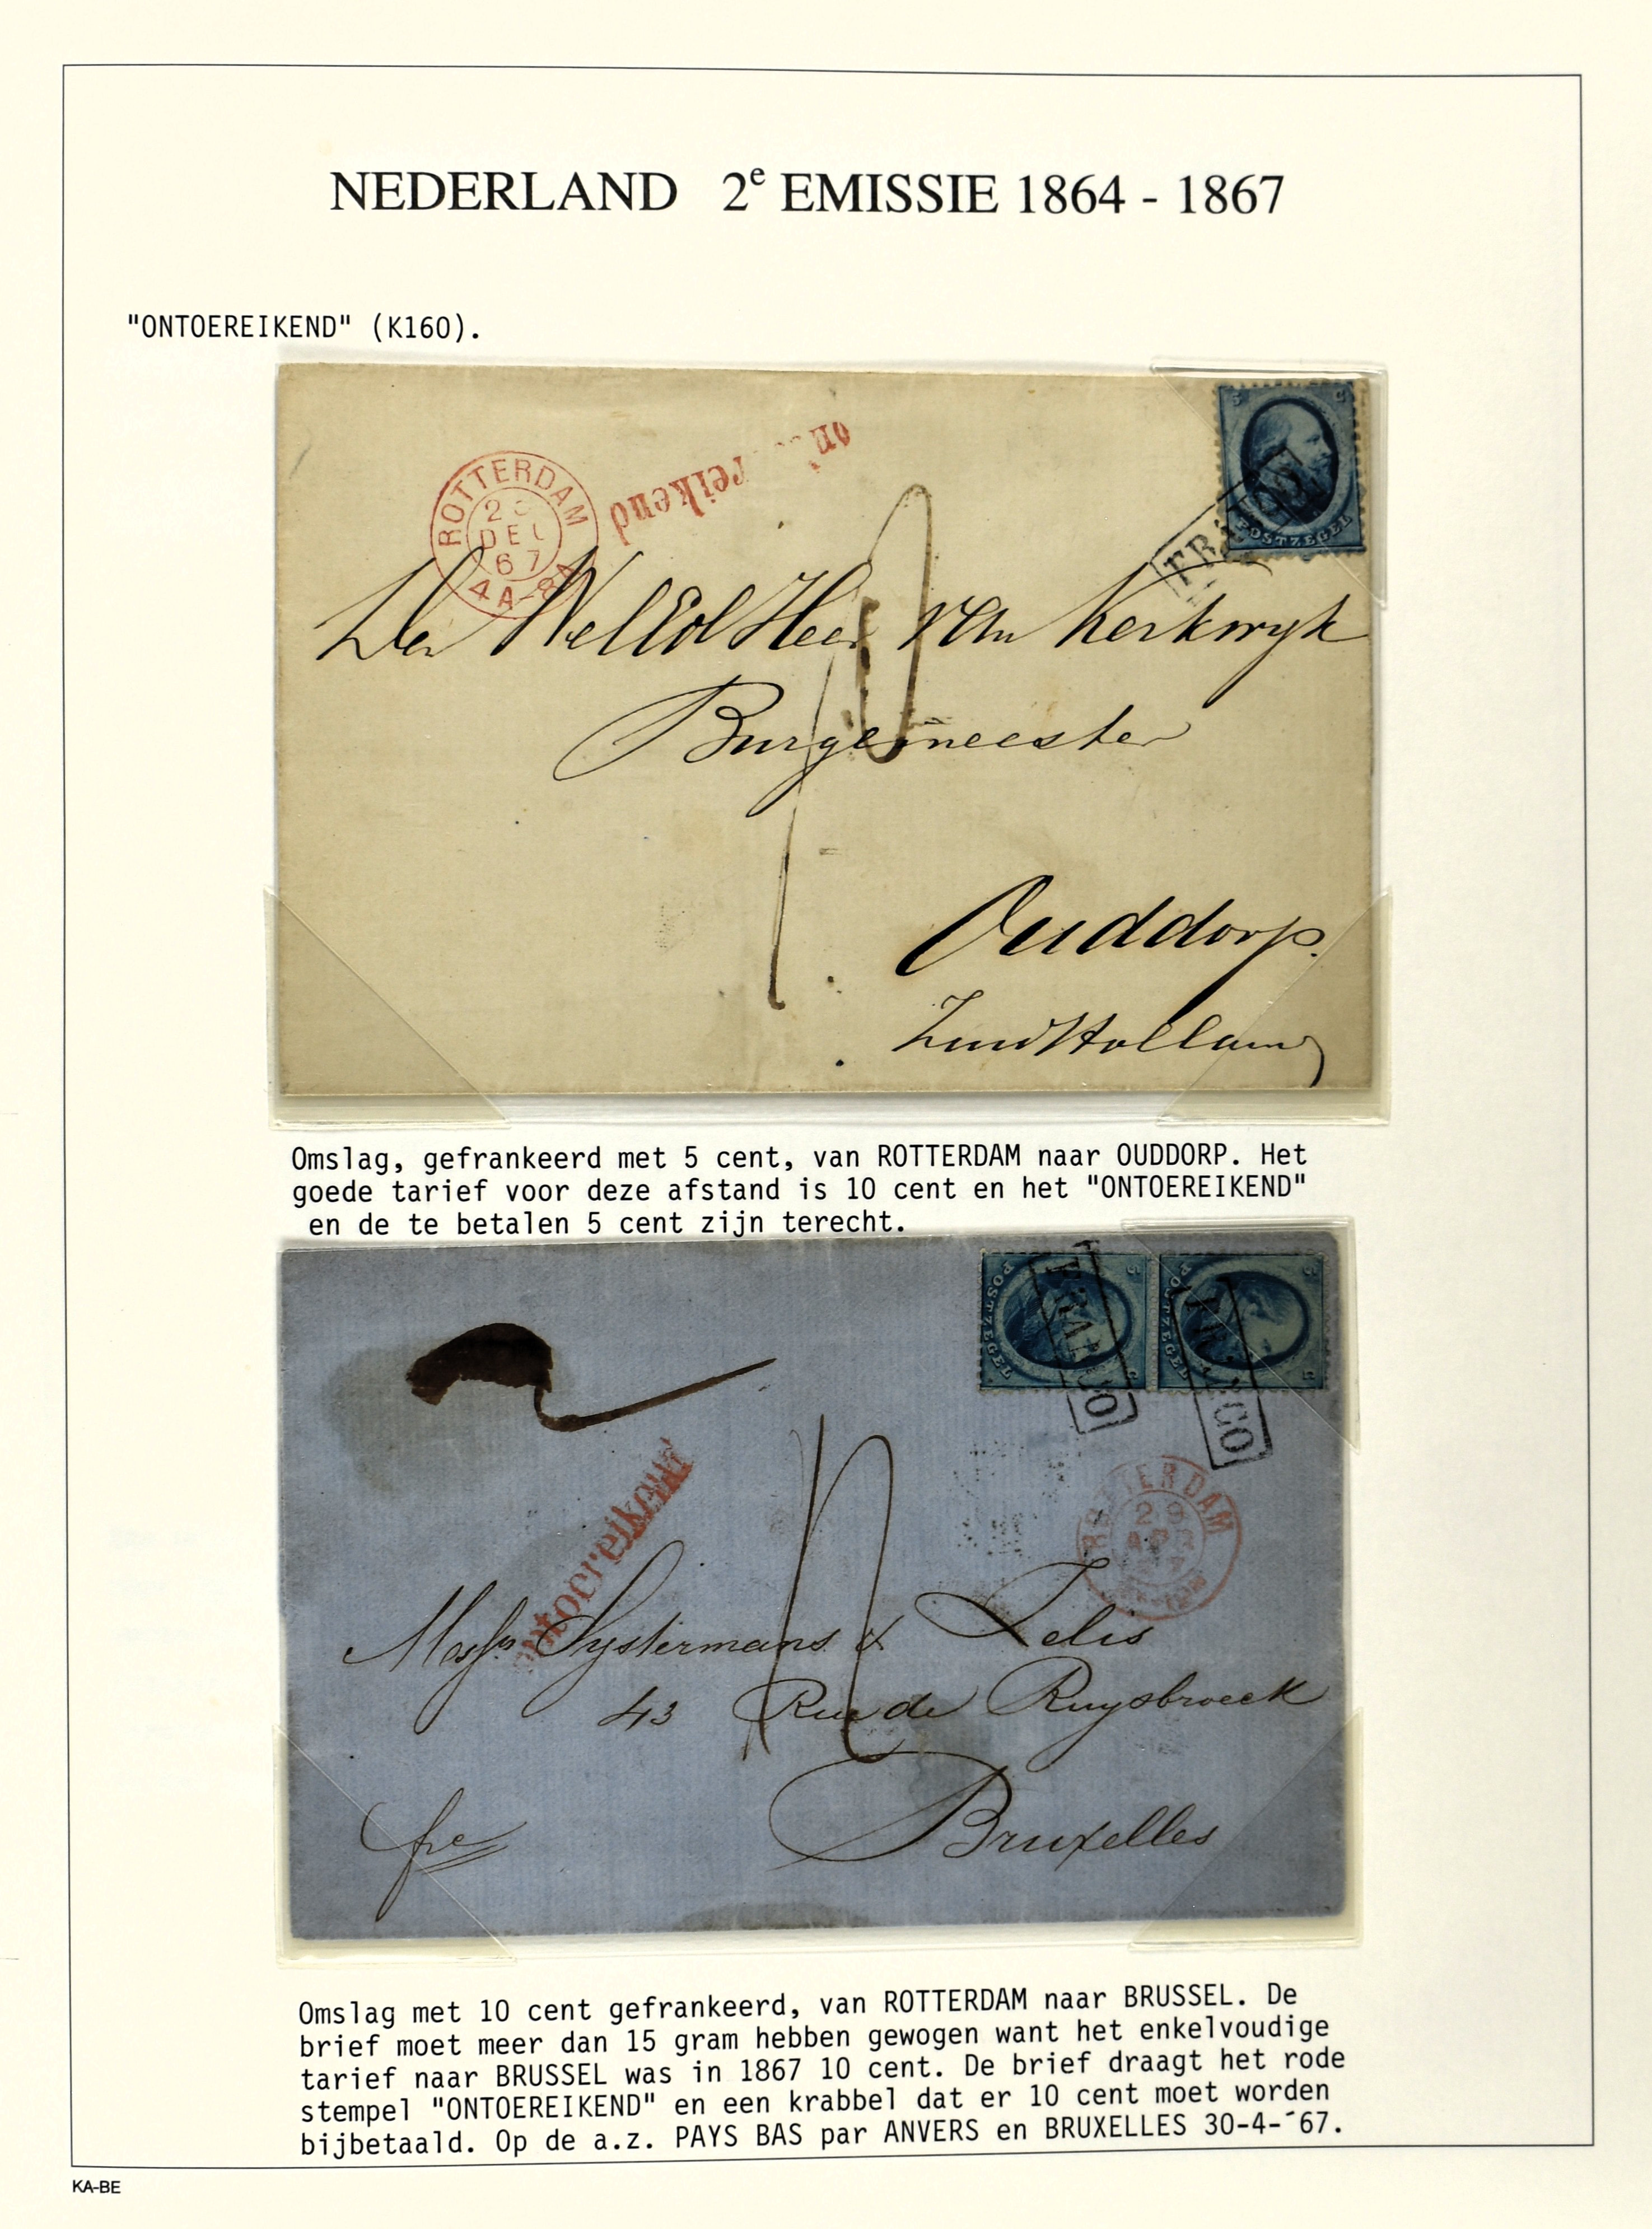 NEDERLAND 2e EMISSIE 1864 - 1867
"ONTOEREIKEND" (K160).
ontoereikend
5 C
POSTZEGEL
FRANCO
ROTTERDAM
DEC
67
4A-8A
Den WelEd Heer van Kerkwyk
Burgemeester
Ouddorp.
Zuid Holland
Omslag, gefrankeerd met 5 cent, van ROTTERDAM naar OUDDORP. Het
goede tarief voor deze afstand is 10 cent en het "ONTOEREIKEND"
en de te betalen 5 cent zijn terecht.
5 C
POSTZEGEL
5 C
POSTZEGEL
FRANCO
FRANCO
2
ontoereikend
ROTTERDAM
29
APR
67
Messrs Systermans & Lelis
43 Rue de Ruysbroeck
Bruxelles
fco
Omslag met 10 cent gefrankeerd, van ROTTERDAM naar BRUSSEL. De
brief moet meer dan 15 gram hebben gewogen want het enkelvoudige
tarief naar BRUSSEL was in 1867 10 cent. De brief draagt het rode
stempel "ONTOEREIKEND" en een krabbel dat er 10 cent moet worden
bijbetaald. Op de a.z. PAYS BAS par ANVERS en BRUXELLES 30-4-´67.
KA-BE